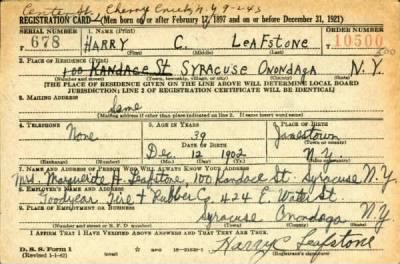 Center St. Cherry Creek, N.Y. 9-2-43
REGISTRATION CARD—(Men born on or after February 17, 1897 and on or before December 31, 1921)
SERIAL NUMBER 1. NAME (Print) ORDER NUMBER
678 HARRY C. LEAFSTONE 10500
(First) (Middle) (Last)
2. PLACE OF RESIDENCE (Print)
100 KANDACE St SYRACUSE ONONDAGA N.Y.
(Number and street) (Town, township, village, or city) (County) (State)
[THE PLACE OF RESIDENCE GIVEN ON THE LINE ABOVE WILL DETERMINE LOCAL BOARD
JURISDICTION; LINE 2 OF REGISTRATION CERTIFICATE WILL BE IDENTICAL]
3. MAILING ADDRESS
Same
[Mailing address if other than place indicated on line 2. If same insert word same]
4. TELEPHONE 5. AGE IN YEARS 6. PLACE OF BIRTH
None 39 Jamestown
DATE OF BIRTH (Town or county)
Dec. 12 1902 N.Y.
(Mo.) (Day) (Yr.) (State or country)
7. NAME AND ADDRESS OF PERSON WHO WILL ALWAYS KNOW YOUR ADDRESS
Mrs. Marguerite H. Leafstone, 100 Kandace St. Syracuse N.Y.
8. EMPLOYER'S NAME AND ADDRESS
Goodyear Tire & Rubber Co. 424 E. Water St.
9. PLACE OF EMPLOYMENT OR BUSINESS
Syracuse Onondaga N.Y.
(Number and street or R. F. D. number) (Town) (County) (State)
I AFFIRM THAT I HAVE VERIFIED ABOVE ANSWERS AND THAT THEY ARE TRUE.
D. S. S. Form 1
(Revised 1-1-42)
Harry C Leafstone
(Registrant's signature)